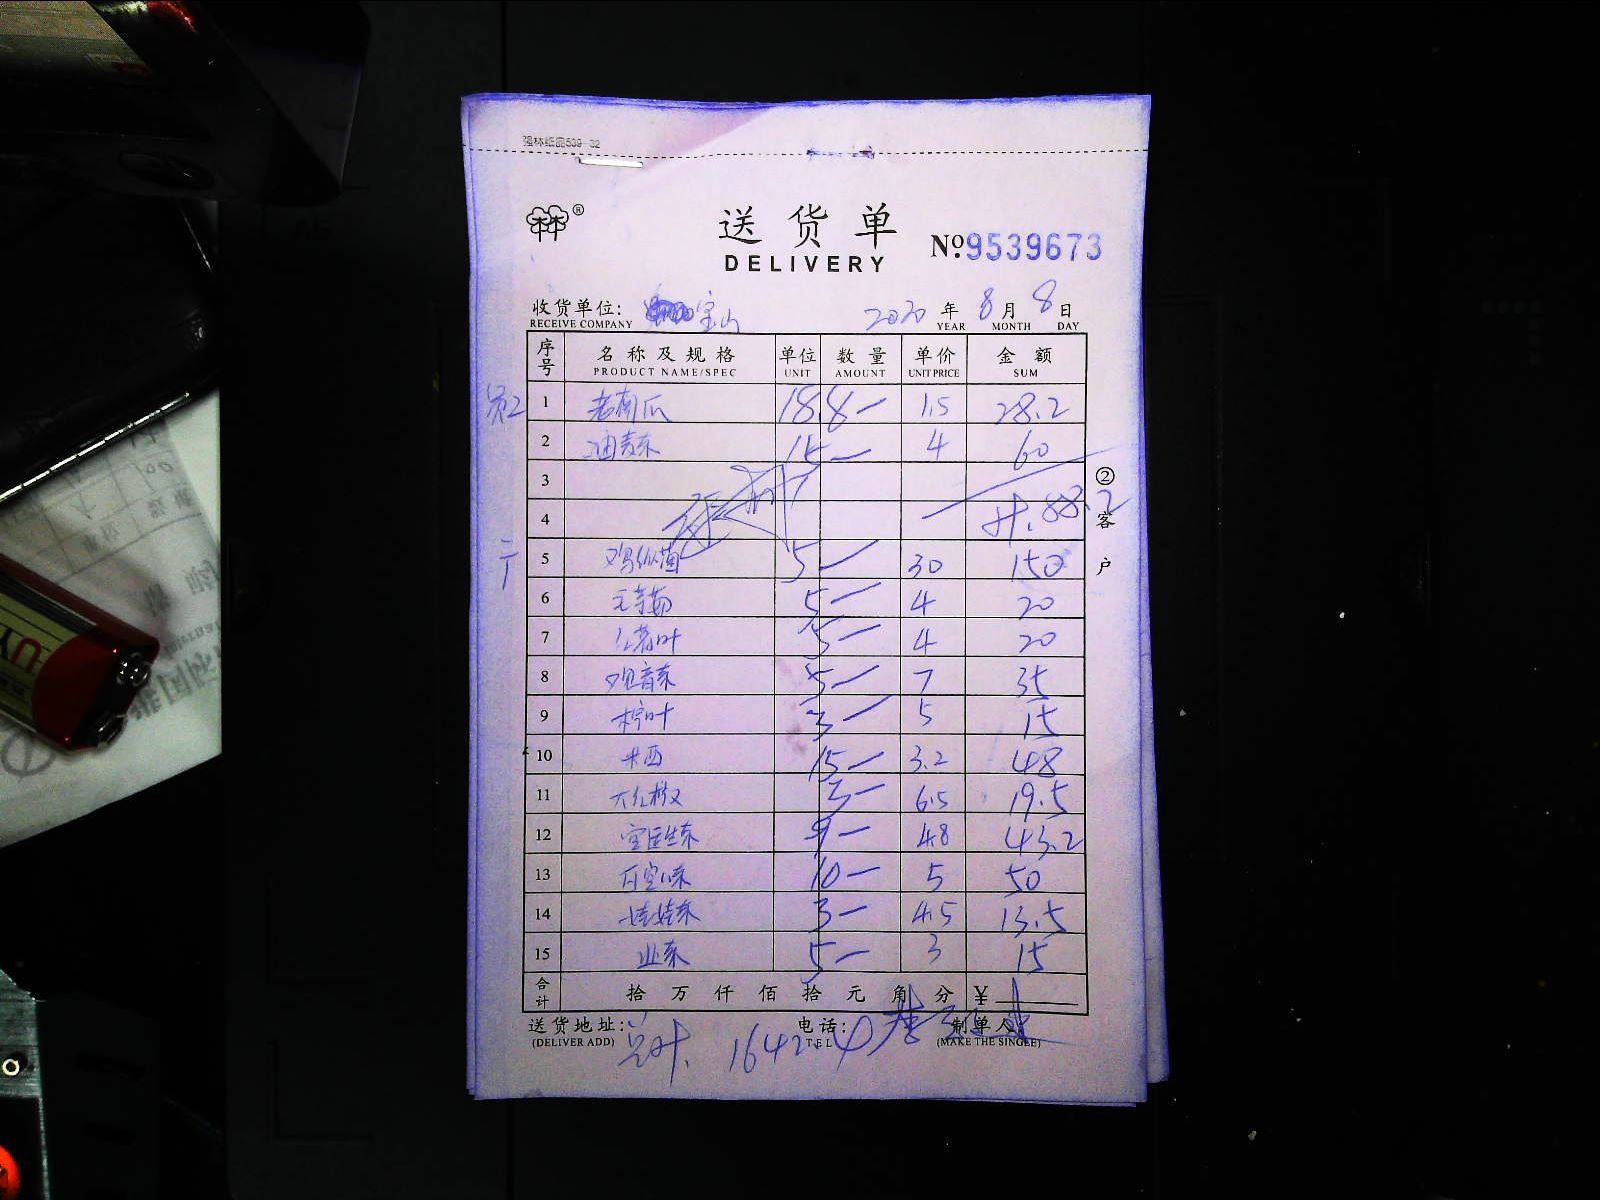 强林纸品539-32
送货单
DELIVERY
№.9539673
收货单位: 宝山 2020年8月8日
RECEIVE COMPANY YEAR MONTH DAY
序号 名称及规格 单位 数量 单价 金额
PRODUCT NAME/SPEC UNIT AMOUNT UNIT PRICE SUM
1 老南瓜 18.8 — 1.5 28.2
2 油麦菜 15 — 4 60
3
4 计.88.2
5 鸡纵菌 5 — 30 150
6 5 — 4 20
7 5 — 4 20
8 观音菜 5 — 7 35
9 柠叶 3 — 5 15
10 米西 15 — 3.2 48
11 大红椒 3 — 6.5 19.5
12 9 — 4.8 43.2
13 10 — 5 50
14 娃娃菜 3 — 4.5 13.5
15 5 — 3 15
合计 拾 万 仟 佰 拾 元 角 分 ¥
送货地址: 电话: 制单人:
(DELIVER ADD) TEL (MAKE THE SINGLE)
总计. 1642.4
②客户